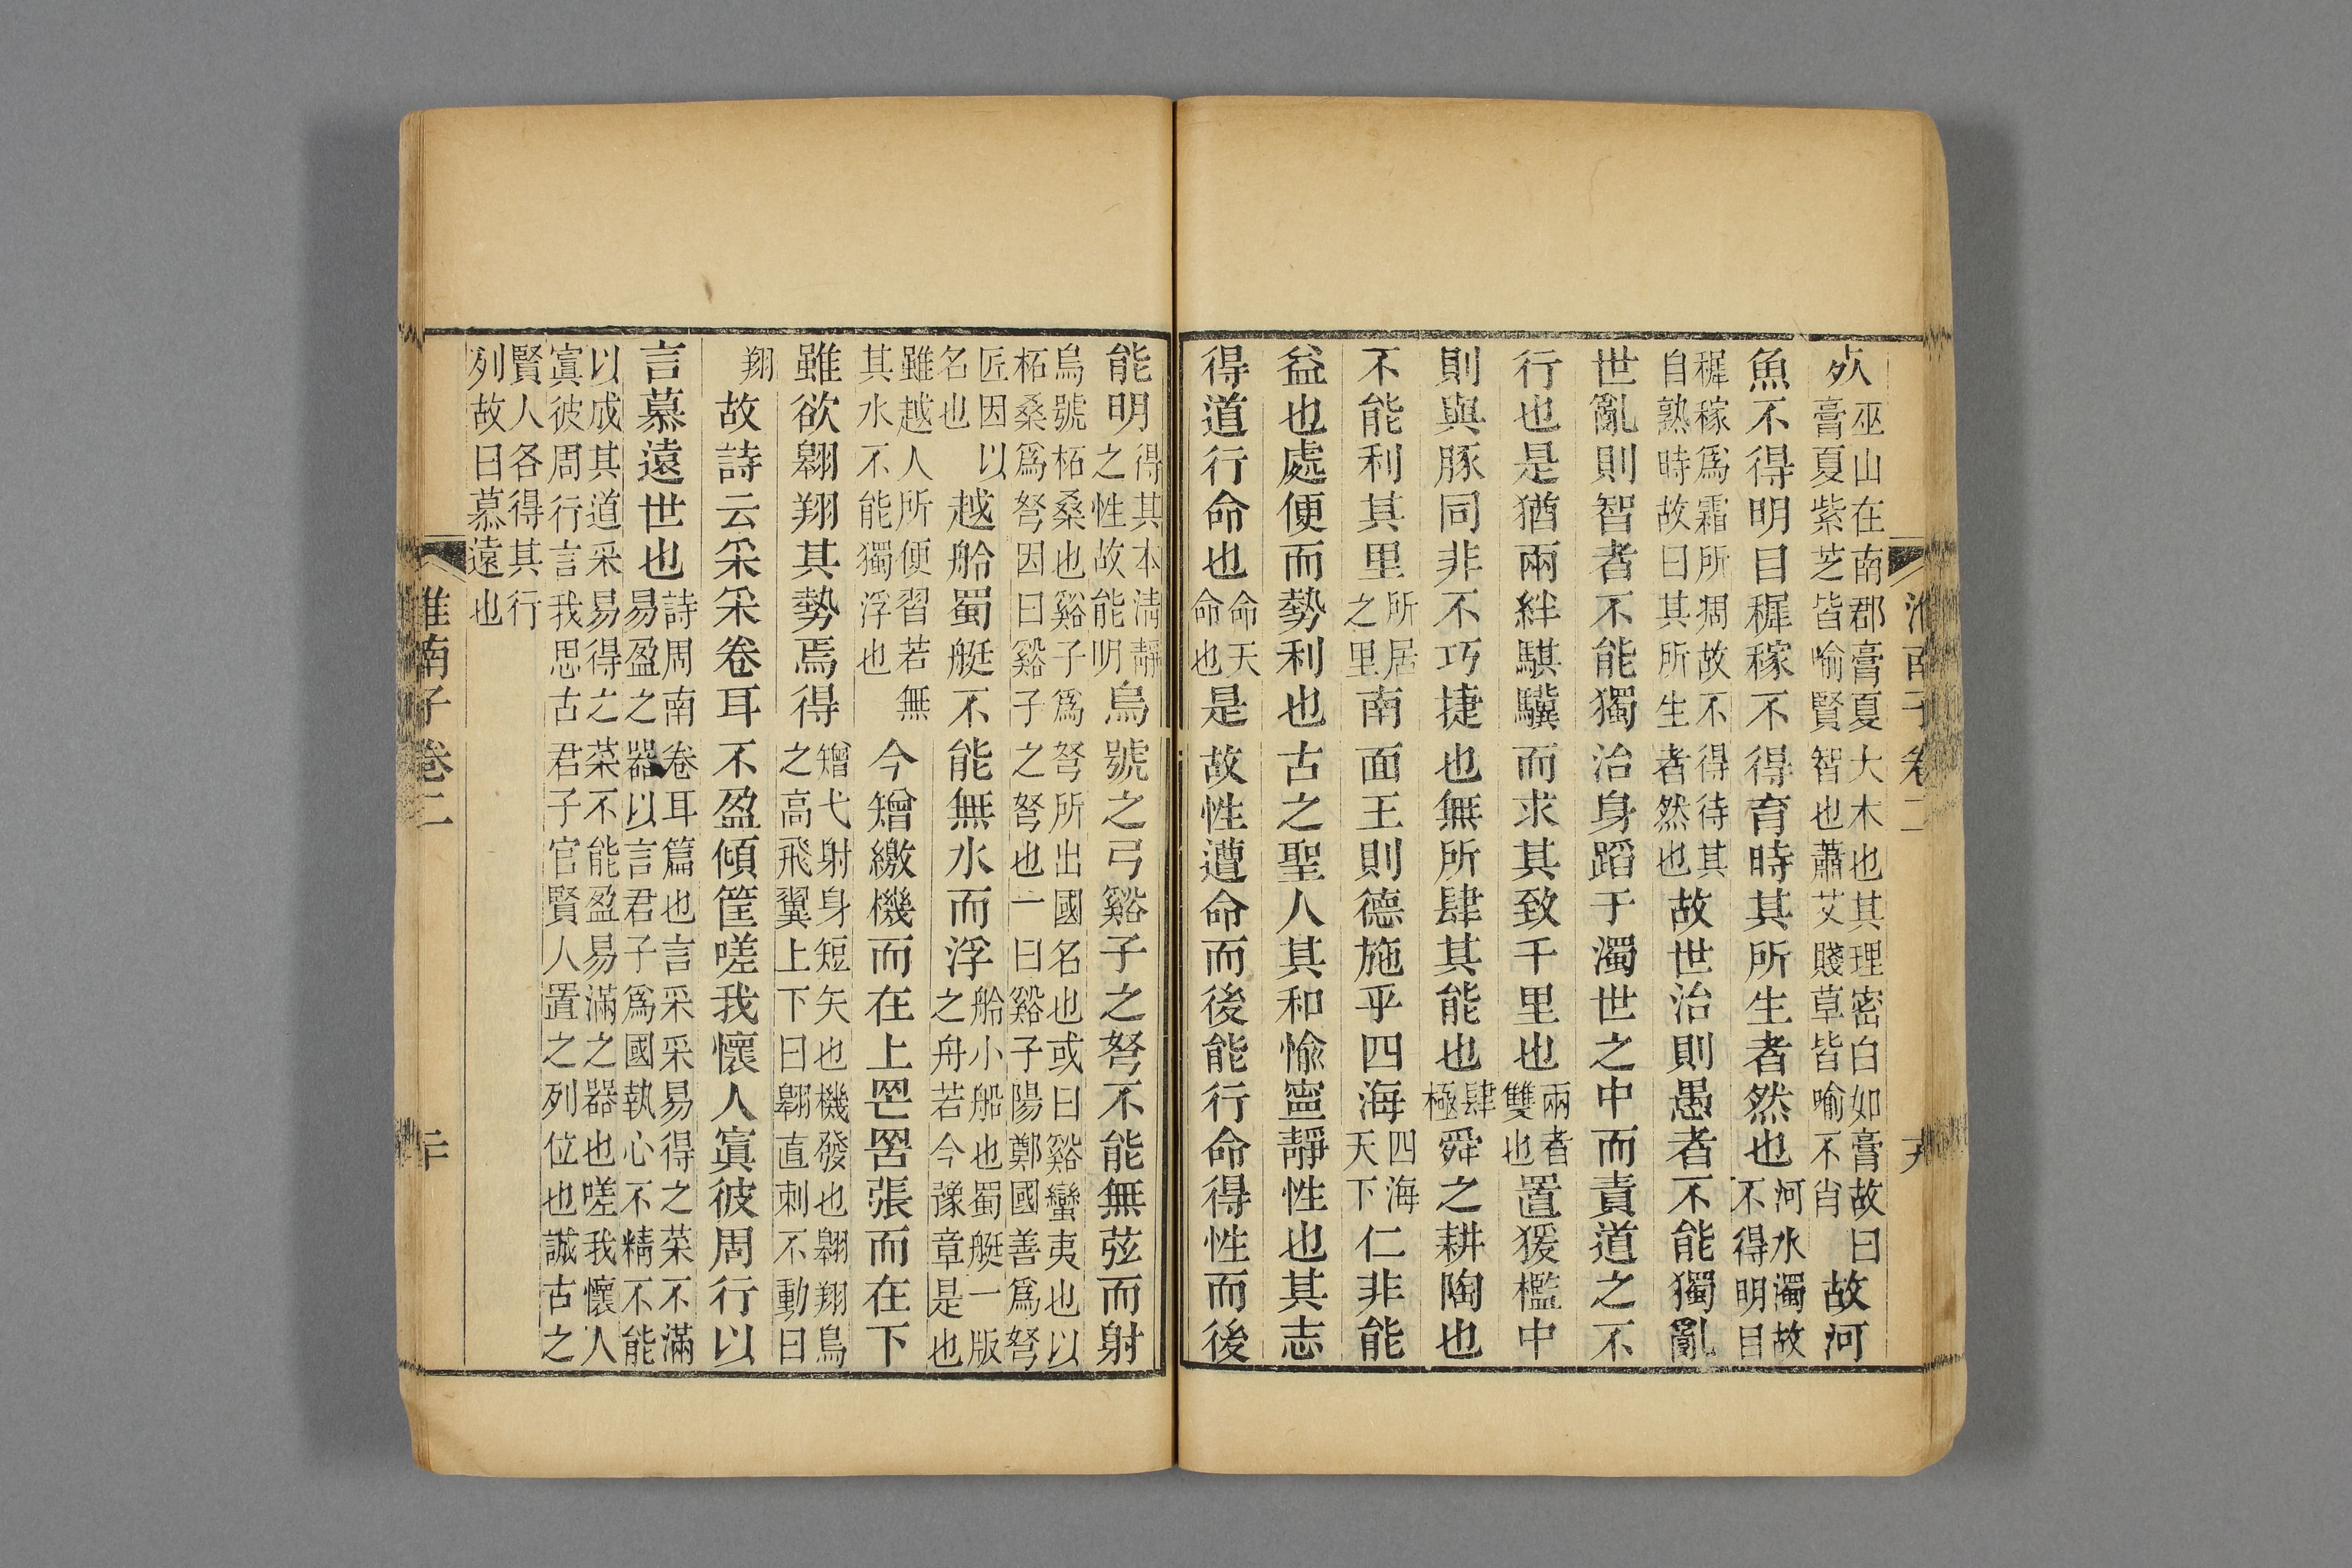 淮南子卷二
死巫山在南郡膏夏大木也其理密白如膏故曰膏夏紫芝皆喻賢智也蕭艾賤草皆喻不肖故河
魚不得明目穉稼不得育時其所生者然也河水濁故不得明目
穉稼爲霜所凋故不得待其自熟時故曰其所生者然也故世治則愚者不能獨亂
世亂則智者不能獨治身蹈于濁世之中而責道之不
行也是猶兩絆騏驥而求其致千里也兩者雙也置猨檻中
則與豚同非不巧捷也無所肆其能也肆極舜之耕陶也
不能利其里所居之里南面王則德施乎四海四海天下仁非能
益也處便而勢利也古之聖人其和愉寧靜性也其志
得道行命也命天命也是故性遭命而後能行命得性而後
能明得其本淸靜之性故能明烏號之弓谿子之弩不能無弦而射
烏號柘桑也谿子爲弩所出國名也或曰谿蠻夷也以柘桑爲弩因曰谿子之弩也一曰谿子陽鄭國善爲弩
匠因以名也越舲蜀艇不能無水而浮舲小船也蜀艇一版之舟若今豫章是也
雖越人所便習若無其水不能獨浮也今矰繳機而在上罔罟張而在下
雖欲翱翔其勢焉得矰弋射身短矢也機發也翱翔鳥之高飛翼上下曰翱直刺不動曰
翔故詩云采采卷耳不盈傾筐嗟我懷人寘彼周行以
言慕遠世也詩周南卷耳篇也言采采易得之菜不滿易盈之器以言君子爲國執心不精不能
以成其道采易得之菜不能盈易滿之器也嗟我懷人寘彼周行言我思古君子官賢人置之列位也誠古之
賢人各得其行列故曰慕遠也
淮南子卷二